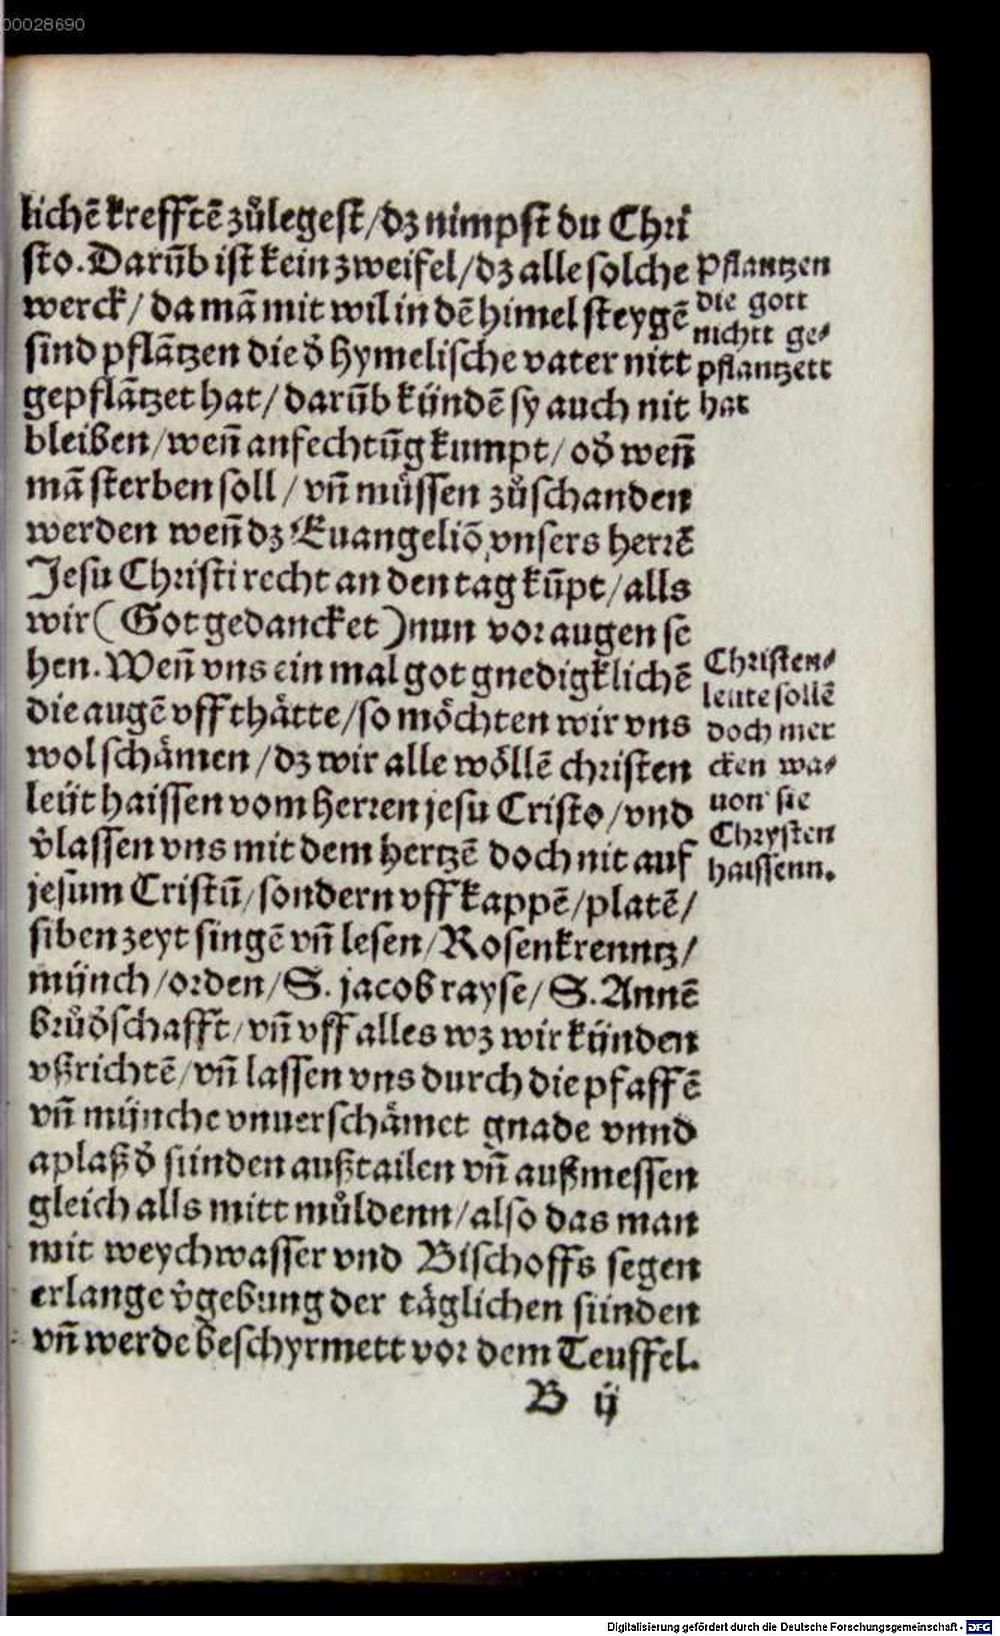 00028690
lichē krefftē zůlegest/dz nimpst du Chri
sto. Darūb ist kein zweifel/dz alle solche
werck/ da mā mit wil in dē himel steygē
sind pflātzen die d̓ hymelische vater nitt
gepflātzet hat/ darūb kündē sy auch nit
bleiben/wen̄ anfechtūg kumpt/ od̓ wen̄
mā sterben soll/ vn̄ müssen zůschanden
werden wen̄ dz Euangeliō vnsers herrē
Jesu Christi recht an den tag kūpt/alls
wir (Got gedancket) nun vor augen se
hen. Wen̄ vns ein mal got gnedigklichē
die augē vff thätte/so möchten wir vns
wol schämen/dz wir alle wöllē christen
leüt haissen vom Herren jesu Cristo/vnd
v̓lassen vns mit dem hertzē doch nit auf
jesum Cristū/sondern vff kappē/platē/
siben zeyt singē vn̄ lesen/Rosenkrenntz/
münch/orden/S. jacob rayse/ S. Annē
brůd̓schafft/vn̄ vff alles wz wir künden
vßrichtē/vn̄ lassen vns durch die pfaffē
vn̄ münche vnuerschämet gnade vnnd
aplaß d̓ sünden außtailen vn̄ außmessen
gleich alls mitt můldenn/also das man
mit weychwasser vnd Bischoffs segen
erlange v̓gebung der täglichen sünden
vn̄ werde beschyrmett vor dem Teuffel.
B ij
Pflantzen
die gott
nichtt ge⸗
pflantzett
hat
Christen⸗
leute sollē
doch mer
cken wa⸗
uon sie
Chrysten
haissenn.
Digitalisierung gefördert durch die Deutsche Forschungsgemeinschaft - DFG